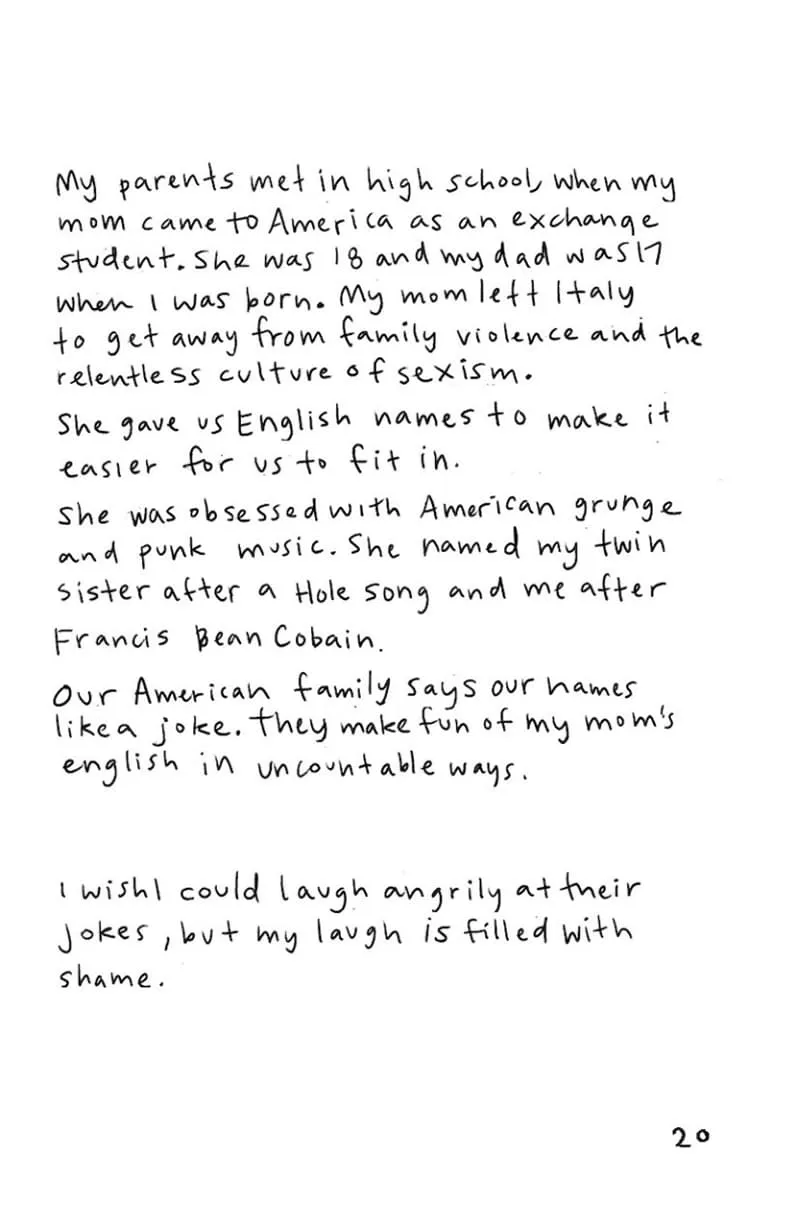 My parents met in high school, when my
mom came to America as an exchange
student. She was 18 and my dad was 17
when I was born. My mom left Italy
to get away from family violence and the
relentless culture of sexism.
She gave us English names to make it
easier for us to fit in.
She was obsessed with American grunge
and punk music. She named my twin
sister after a Hole song and me after
Francis Bean Cobain.
Our American family says our names
like a joke. They make fun of my mom's
english in uncountable ways.
I wish I could laugh angrily at their
jokes, but my laugh is filled with
shame.
20